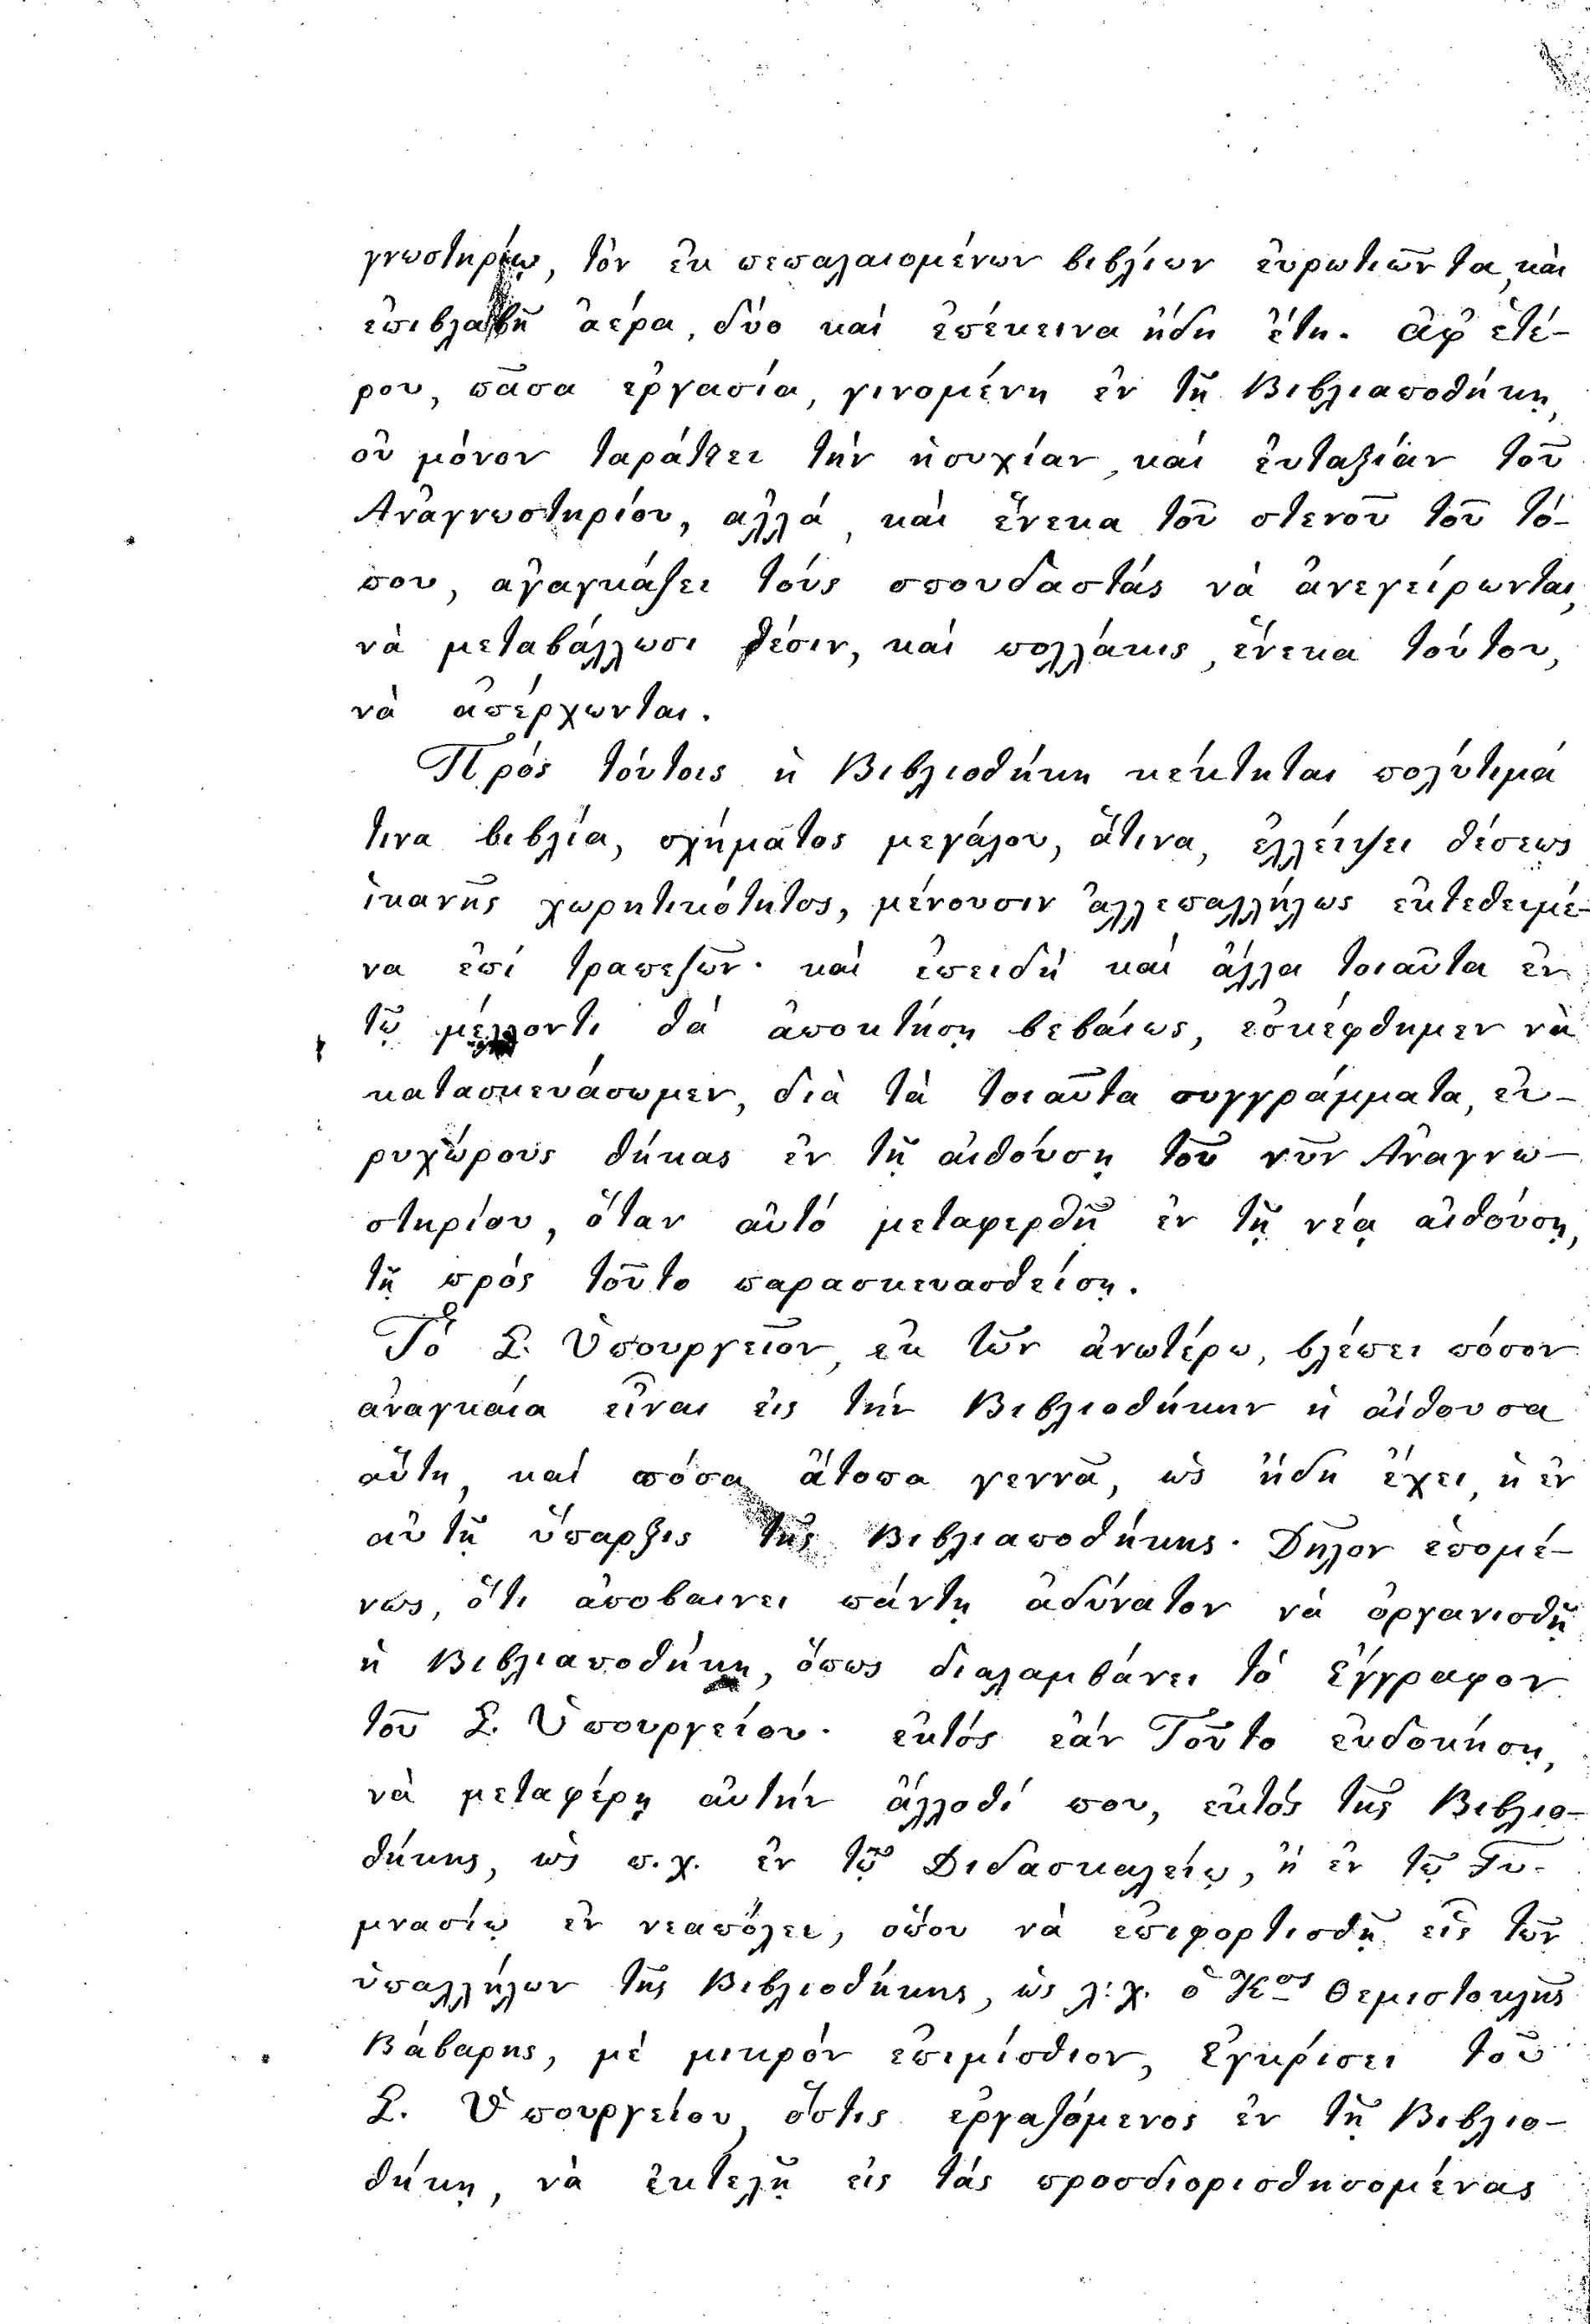 γνωστηρίῳ, τὸν ἐκ πεπαλαιομένων βιβλίων εὐρωτιῶντα, καὶ
ἐπιβλαβῆ ἀέρα, δύο καὶ ἐπέκεινα ἤδη ἔτη. ἀφ' ἑτέ-
ρου, πᾶσα ἐργασία, γινομένη ἐν τῇ Βιβλιαποθήκῃ,
οὐ μόνον ταράττει τὴν ἡσυχίαν, καὶ εὐταξίαν τοῦ
Ἀναγνωστηρίου, ἀλλά, καὶ ἕνεκα τοῦ στενοῦ τοῦ τό-
που, ἀναγκάζει τοὺς σπουδαστάς νὰ ἀνεγείρωνται,
νὰ μεταβάλλωσι θέσιν, καὶ πολλάκις, ἕνεκα τούτου,
νὰ ἀπέρχωνται.
Πρός τούτοις ἡ Βιβλιοθήκη κέκτηται πολύτιμά
τινα βιβλία, σχήματος μεγάλου, ἅτινα, ἐλλείψει θέσεως
ἱκανῆς χωρητικότητος, μένουσιν ἀλλεπαλλήλως ἐκτεθειμέ-
να ἐπί τραπεζῶν· καὶ ἐπειδή καὶ ἄλλα τοιαῦτα ἐν
τῷ μέλλοντι θά ἀποκτήσῃ βεβαίως, ἐσκέφθημεν νὰ
κατασκευάσωμεν, διὰ τὰ τοιαῦτα συγγράμματα, εὐ-
ρυχώρους θήκας ἐν τῇ αἰθούσῃ τοῦ νῦν Ἀναγνω-
στηρίου, ὅταν αὐτό μεταφερθῇ ἐν τῇ νέᾳ αἰθούσῃ,
τῇ πρός τοῦτο παρασκευασθείσῃ.
Τό Σ. Ὑπουργεῖον, ἐκ τῶν ἀνωτέρω, βλέπει πόσον
ἀναγκαία εἶναι εἰς τήν Βιβλιοθήκην ἡ αἴθουσα
αὕτη, καί πόσα ἄτοπα γεννᾷ, ὡς ἤδη ἔχει, ἡ ἐν
αὐτῇ ὕπαρξις τῆς Βιβλιαποθήκης. Δῆλον ἑπομέ-
νως, ὅτι ἀποβαινει πάντῃ ἀδύνατον νὰ ὀργανισθῇ
ἡ Βιβλιαποθήκη, ὅπως διαλαμβάνει τό ἔγγραφον
τοῦ Σ. Ὑπουργείου· ἐκτός ἐάν Τοῦτο εὐδοκήσῃ,
νὰ μεταφέρῃ αὐτήν ἄλλοθί που, ἐκτός τῆς Βιβλιο-
θήκης, ὡς π.χ. ἐν τῷ Διδασκαλείῳ, ἤ ἐν τῷ Γυ-
μνασίῳ ἐν νεαπόλει, ὅπου νὰ ἐπιφορτισθῇ εἷς τῶν
ὑπαλλήλων τῆς Βιβλιοθήκης, ὡς λ.χ. ὁ Κος Θεμιστοκλῆς
Βάβαρης, μὲ μικρόν ἐπιμίσθιον, ἐγκρίσει τοῦ
Σ. Ὑπουργείου, ὅστις ἐργαζόμενος ἐν τῇ Βιβλιο-
θήκῃ, νὰ ἐκτελῇ εἰς τάς προσδιορισθησομένας